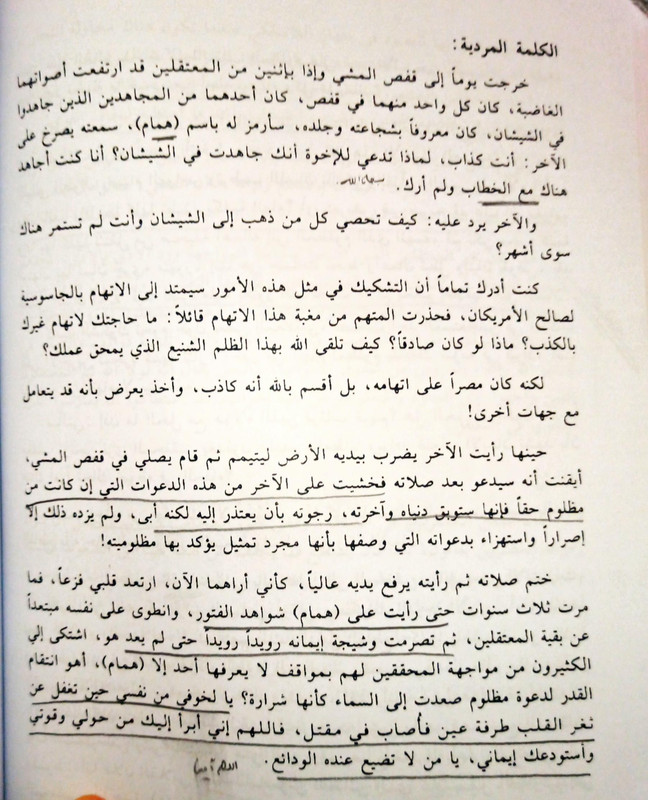 الكلمة المردية:
خرجت يوماً إلى قفص المشي وإذا بإثنين من المعتقلين قد ارتفعت أصواتهما
الغاضبة، كان كل واحد منهما في قفص، كان أحدهما من المجاهدين الذين جاهدوا
في الشيشان، كان معروفاً بشجاعته وجلده، سأرمز له باسم (همام)، سمعته يصرخ على
الآخر: أنت كذاب، لماذا تدعي للإخوة أنك جاهدت في الشيشان؟ أنا كنت أجاهد
هناك مع الخطاب ولم أرك.
والآخر يرد عليه: كيف تحصي كل من ذهب إلى الشيشان وأنت لم تستمر هناك
سوى أشهر؟
كنت أدرك تماماً أن التشكيك في مثل هذه الأمور سيمتد إلى الاتهام بالجاسوسية
لصالح الأمريكان، فحذرت المتهم من مغبة هذا الاتهام قائلاً: ما حاجتك لاتهام غيرك
بالكذب؟ ماذا لو كان صادقاً؟ كيف تلقى الله بهذا الظلم الشنيع الذي يمحق عملك؟
لكنه كان مصراً على اتهامه، بل أقسم بالله أنه كاذب، وأخذ يعرض بأنه قد يتعامل
مع جهات أخرى!
حينها رأيت الآخر يضرب بيديه الأرض ليتيمم ثم قام يصلي في قفص المشي،
أيقنت أنه سيدعو بعد صلاته فخشيت على الآخر من هذه الدعوات التي إن كانت من
مظلوم حقاً فإنها ستوبق دنياه وآخرته، رجوته بأن يعتذر إليه لكنه أبى، ولم يزده ذلك إلا
إصراراً واستهزاء بدعواته التي وصفها بأنها مجرد تمثيل يؤكد بها مظلوميته!
ختم صلاته ثم رأيته يرفع يديه عالياً، كأني أراهما الآن، ارتعد قلبي فزعاً، فما
مرت ثلاث سنوات حتى رأيت على (همام) شواهد الفتور، وانطوى على نفسه مبتعداً
عن بقية المعتقلين، ثم تصرمت وشيجة إيمانه رويداً رويداً حتى لم يعد هو، اشتكى إلي
الكثيرون من مواجهة المحققين لهم بمواقف لا يعرفها أحد إلا (همام)، أهو انتقام
القدر لدعوة مظلوم صعدت إلى السماء كأنها شرارة؟ يا لخوفي من نفسي حين تغفل عن
ثغر القلب طرفة عين فأصاب في مقتل، فاللهم إني أبرأ إليك من حولي وقوتي
وأستودعك إيماني، يا من لا تضيع عنده الودائع.